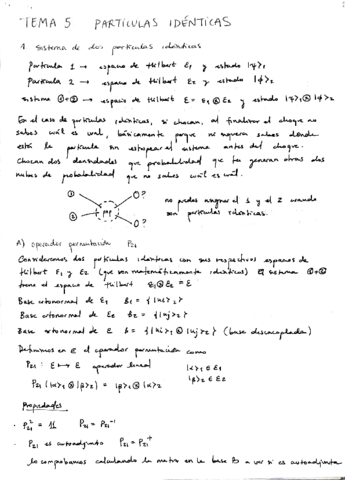 TEMA 5 PARTICULAS IDÉNTICAS
1. Sistema de dos partículas idénticas
Partícula 1 → espacio de Hilbert E₁ y estado |ψ⟩₁
Partícula 2 → espacio de Hilbert E₂ y estado |ϕ⟩₂
Sistema ①+② → espacio de Hilbert E = E₁⊗E₂ y estado |ψ⟩₁⊗|ϕ⟩₂
En el caso de partículas idénticas, si chocan, al finalizar el choque no
sabes cuál es cual, básicamente porque ni siquiera sabes dónde
está la partícula sin estropear el sistema antes del choque.
Chocan dos densidades de probabilidad que te generan otras dos
nubes de probabilidad que no sabes cuál es cuál.
① O?
② O?
no puedes asignar el 1 y el 2 cuando
son partículas idénticas.
A) operador permutación P₂₁
Consideremos dos partículas idénticas con sus respectivos espacios de
Hilbert E₁ y E₂ (que son matemáticamente idénticos) El sistema ①+②
tiene el espacio de Hilbert E₁⊗E₂ = E
Base ortonormal de E₁ B₁ = {|ui⟩₁}
Base ortonormal de E₂ B₂ = {|uj⟩₂}
Base ortonormal de E B = {|ui⟩₁⊗|uj⟩₂} (base desacoplada)
Definimos en E el operador permutación como
P₂₁ : E ↦ E operador lineal |α⟩₁ ∈ E₁
|β⟩₂ ∈ E₂
P₂₁ (|α⟩₁⊗|β⟩₂) = |β⟩₁⊗|α⟩₂
Propiedades
· P₂₁² = 1 P₂₁ = P₂₁⁻¹
· P₂₁ es autoadjunto P₂₁ = P₂₁⁺
lo comprobamos calculando la matriz en la base B a ver si es autoadjunta